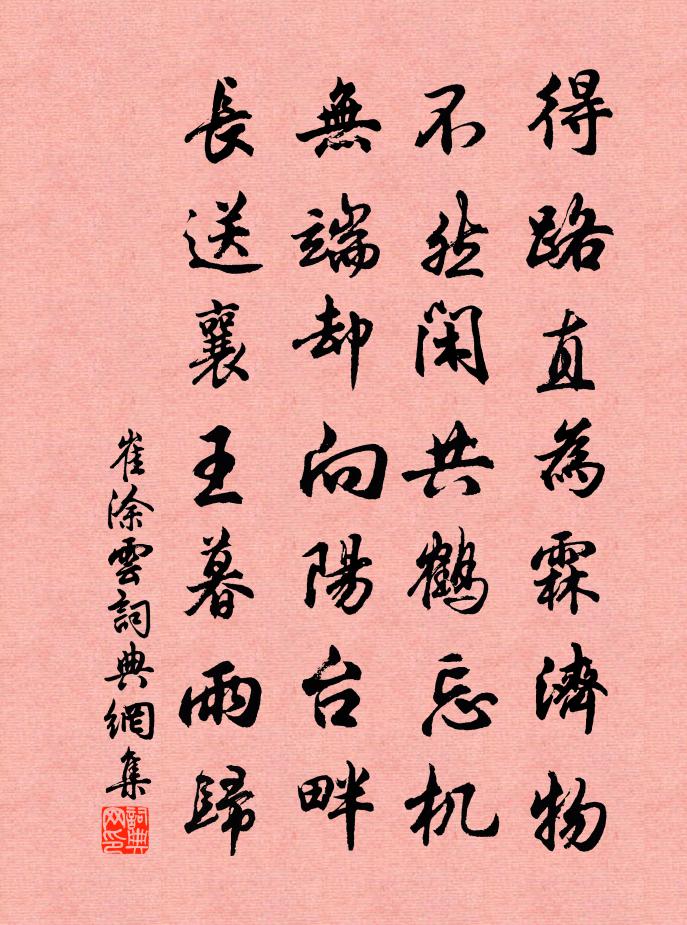 得路直為霖濟物
不然閑共鶴忘机
無端却向陽台畔
長送襄王暮雨歸
崔涂雲詞典網集
詞典网印